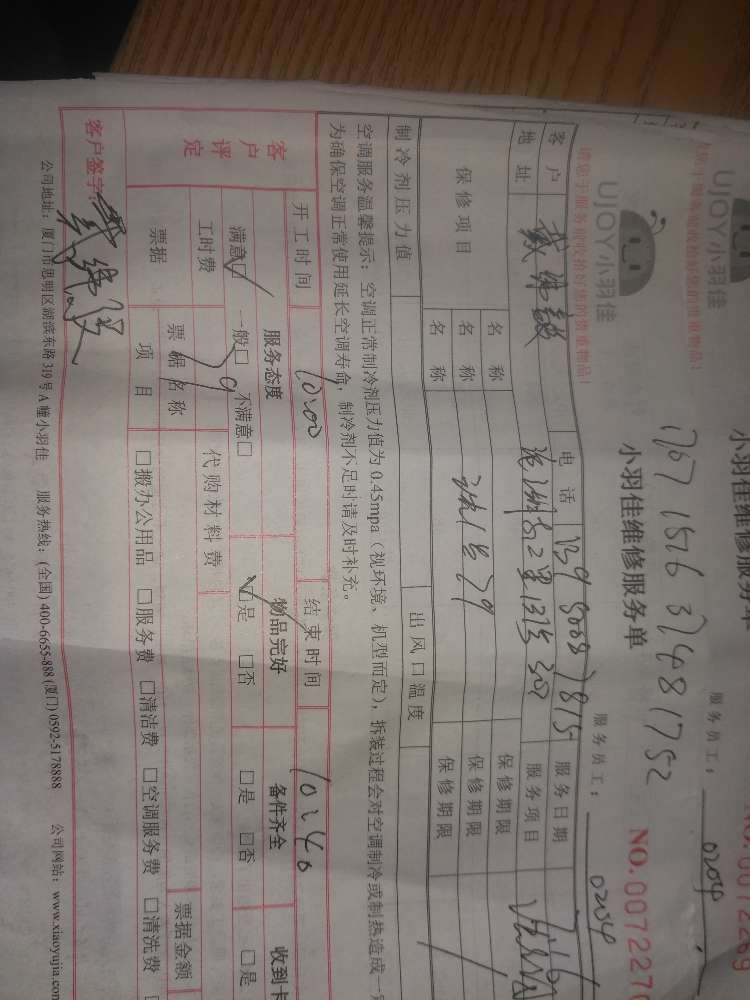 小羽佳维修服务单
服务员工：
0204
UJOY小羽佳
请您于服务前收拾好您的贵重物品！
1767 1576 3748 1752
小羽佳维修服务单
NO.0072270
服务员工：
0204
客户
电话
139
服务日期
7.16
地址
131号302
服务项目
保修项目
名称
保修期限
名称
保修期限
名称
保修期限
制冷剂压力值
出风口温度
空调服务温馨提示：空调正常制冷剂压力值为0.45mpa（视环境、机型而定），拆装过程会对空调制冷或制热造成一定
为确保空调正常使用延长空调寿命，制冷剂不足时请及时补充。
开工时间
10:00
结束时间
10:40
客户评定
服务态度
物品完好
备件齐全
收到卡
满意□ 一般□ 不满意□
□是 □否
□是 □否
□是
工时费
79
代购材料费
票据
票据名称
票据金额
项目
□搬办公用品 □服务费 □清洁费 □空调服务费 □清洗费
客户签字：
公司地址：厦门市思明区湖滨东路319号A幢小羽佳 服务热线：(全国) 400-6655-888 (厦门) 0592-5178888 公司网站：www.xiaoyujia.com